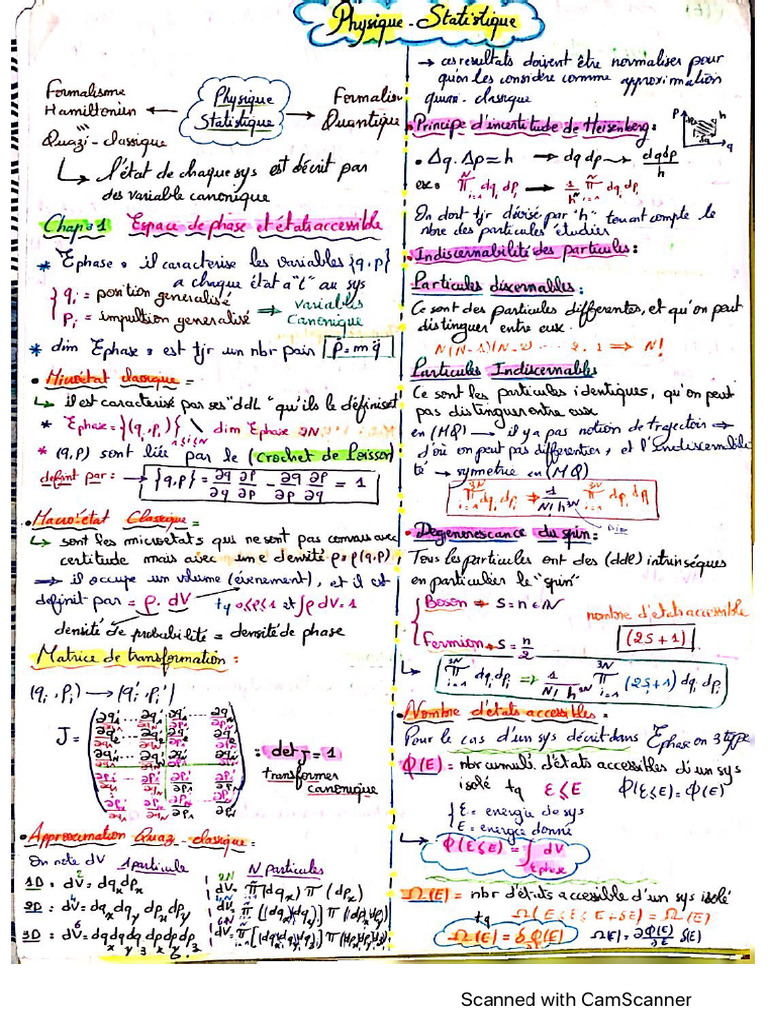 Physique-Statistique
Formalisme
Hamiltonien
Quazi-classique
Physique
Statistique
Formalism
Quantique
l'état de chaque sys est décrit par
des variable canonique
Chap:1 Espace de phase et états accessible
* Ephase: il caracterise les variables {q,p}
a chaque état a "t" au sys
{ qi = position generalisé
Pi = impultion generalisé ⇒ variables
Canonique
* dim Ephase: est tjr un nbr pair P=mq̇
• Microétat classique =
↳ il est caracterisé par ses "ddL" qu'ils le définiset
* Ephase = {(qi,Pi)} 1≤i≤N \ dim Ephase 2N
* (q,P) sont liée par le (crochet de Poisson)
definit par: → {q,P} = ∂q/∂q ∂P/∂P - ∂q/∂P ∂P/∂q = 1
• Macro-état Classique =
↳ sont les microetats qui ne sont pas connues avec
certitude mais avec un e densité ρ=ρ(q,P);
→ il occupe un volume (évenement), et il est
definit par = ρ.dV tq 0≤ρ≤1 et ∫ρ dV=1
densité de probabilité = densité de phase
Matrice de transformation:
(qi, Pi) → (qi', Pi')
J =
: det J = 1
transformer
canonique
• Approximation Quaz-classique:
On note dV 1 particule N particules
1D: dV² = dq dPx dV^2N = π(dqx) π(dPx)
2D: dV⁴ = dqx dqy dPx dPy
3D: dV⁶ = dqx dqy dqz dPx dPy dPz
→ ces resultats doivent être normaliser pour
qu'on les considère comme approximation
quasi-classique
• Principe d'incertitude de Heisenberg:
P h dq q
• Δq.Δp≈h → dq dp → dqdp/h
exe: π^N i=1 dqi dPi → 1/h^N π^N i=1 dqi dPi
On doit tjr dévisé par "h" tenant compte le
nbre des particules étudier
• Indiscernabilité des particules:
Particules discernables:
Ce sont des particules differentes, et qu'on peut
distinguer entre eux.
N(N-1)(N-2) ... 2.1 ⇒ N!
Particules Indiscernables
Ce sont les particules identiques, qu'on peut
pas distinguer entre eux
en (MQ) → il y a pas notion de trajectoire ⇒
d'où on peut pas differentier, et l'Indiscernabili
té → symetrie en (MQ)
π^3N i=1 dqi dPi ⇒ 1/N! h^3N π^3N i=1 dqi dPi
• Degenerescance du spin:
Tous les particules ont des (ddl) intrinséques
en particulier le "spin"
{ Boson → s=n∈N
Fermion → s=n/2
nombre d'états accessible
(2S+1)
↳ π^3N i=1 dqi dPi ⇒ 1/N! h^3N π^3N i=1 (2S+1) dqi dPi
• Nombre d'états accessibles =
Pour le cas d'un sys décrit dans Ephase on 3 type
Φ(E) = nbr cumulé d'états accessibles d'un sys
isolé tq ε≤E Φ(ε≤E)=Φ(E)
{ ε = energie de sys
E = energie donné
↳ Φ(ε≤E) = ∫ dV
Ephase
Ω(E) = nbr d'états accessible d'un sys isolé
tq Ω(E≤ε≤E+δE) = Ω(E)
Ω(E) = δΦ(E) Ω(E) = ∂Φ(E)/∂E δ(E)
Scanned with CamScanner